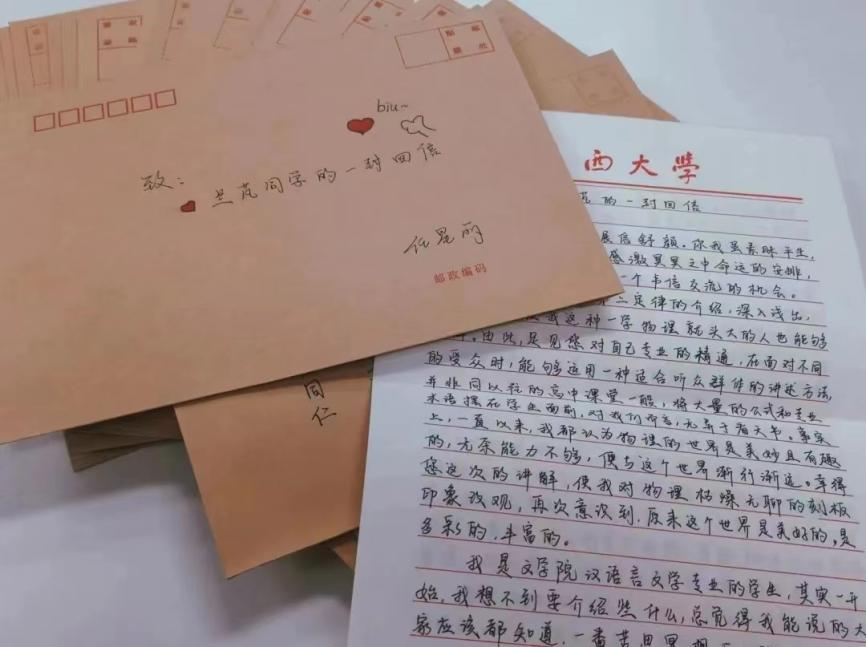 biu~
致：
兰芃同学的一封回信
任昆丽
邮政编码
同
仁
西大学
的一封回信
展信舒颜。你我虽素昧平生，
感激冥冥之中命运的安排，
一个书信交流的机会。
定律的介绍，深入浅出，
我这种一学物理就头大的人也能够
。由此，足见您对自己专业的精通，在面对不同
的受众时，能够运用一种适合听众群体的讲述方法，
并非同以往的高中课堂一般，将大量的公式和专业
术语摆在学生面前，对我们而言，无异于看天书。事实
上，一直以来，我都认为物理的世界是美妙且有趣
的，无奈能力不够，便与这个世界渐行渐远。幸得
您这次的讲解，使我对物理枯燥无聊的刻板
印象改观，再次意识到，原来这个世界是美好的，是
多彩的，丰富的。
我是文学院汉语言文学专业的学生，其实一开
始，我想不到要介绍些什么，总觉得我能说的大
家应该都知道，一番苦思冥想